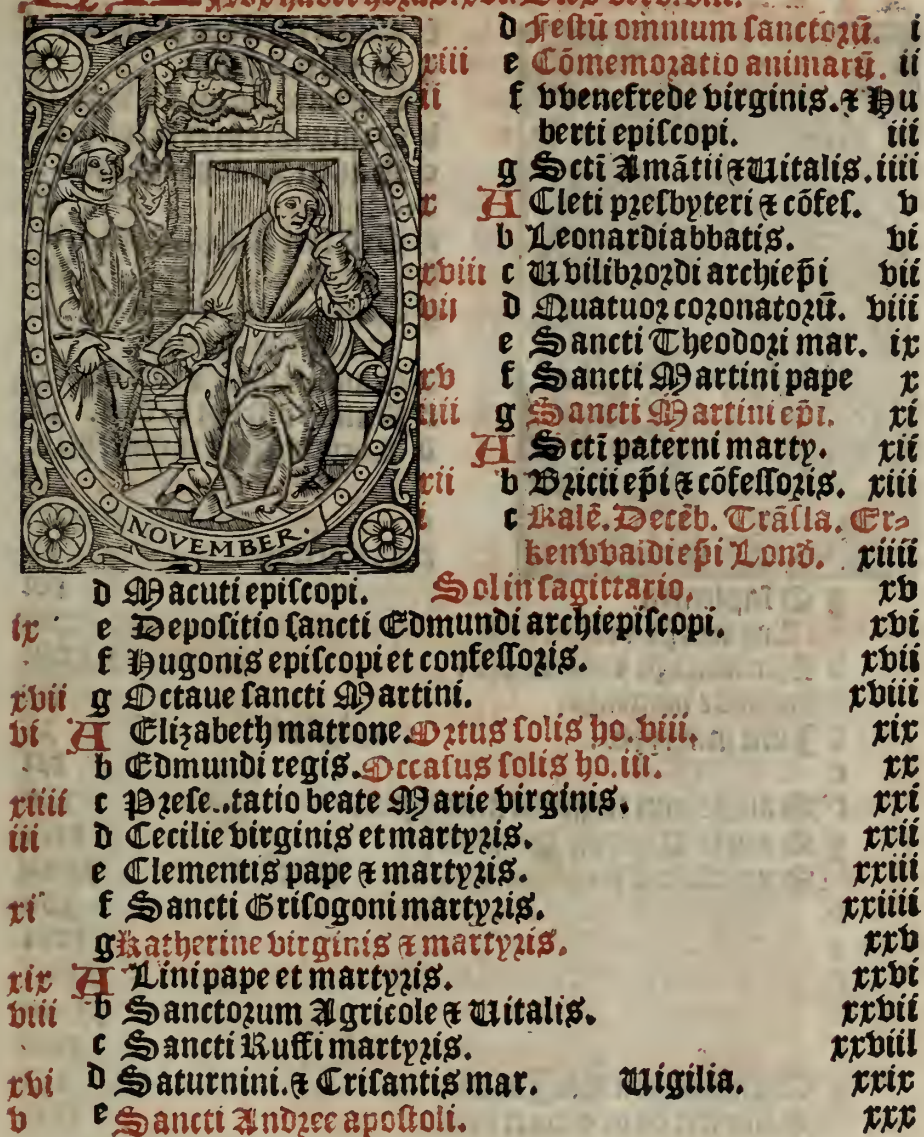 d Festū omnium sanctorū. i
xiii e Cōmemoratio animarū. ii
ii f vvenefrede virginis. & Hu
berti episcopi. iii
g Sctī Amātii & Vitalis. iiii
x A Cleti presbyteri & cōfes. v
b Leonardi abbatis. vi
xviii c Vvilibrordi archiep̄i vii
vii d Quatuor coronatorū. viii
e Sancti Theodori mar. ix
xv f Sancti Martini pape x
iiii g Sancti Martini ep̄i. xi
A Sctī paterni marty. xii
xii b Bricii ep̄i & cōfessoris. xiii
i c Kalē. Decēb. Trāsla. Er-
kenvvaldi ep̄i Lond. xiiii
NOVEMBER.
d Macuti episcopi. Sol in sagittario. xv
ix e Depositio sancti Edmundi archiepiscopi. xvi
f Hugonis episcopi et confessoris. xvii
xvii g Octaue sancti Martini. xviii
vi A Elizabeth matrone. Ortus solis ho. viii. xix
b Edmundi regis. Occasus solis ho. iii. xx
xiiii c Prese..tatio beate Marie virginis. xxi
iii d Cecilie virginis et martyris. xxii
e Clementis pape & martyris. xxiii
xi f Sancti Grisogoni martyris. xxiiii
g Katherine virginis & martyris. xxv
xix A Lini pape et martyris. xxvi
viii b Sanctorum Agricole & Vitalis. xxvii
c Sancti Ruffi martyris. xxviii
xvi d Saturnini. & Crisantis mar. Vigilia. xxix
v e Sancti Andree apostoli. xxx